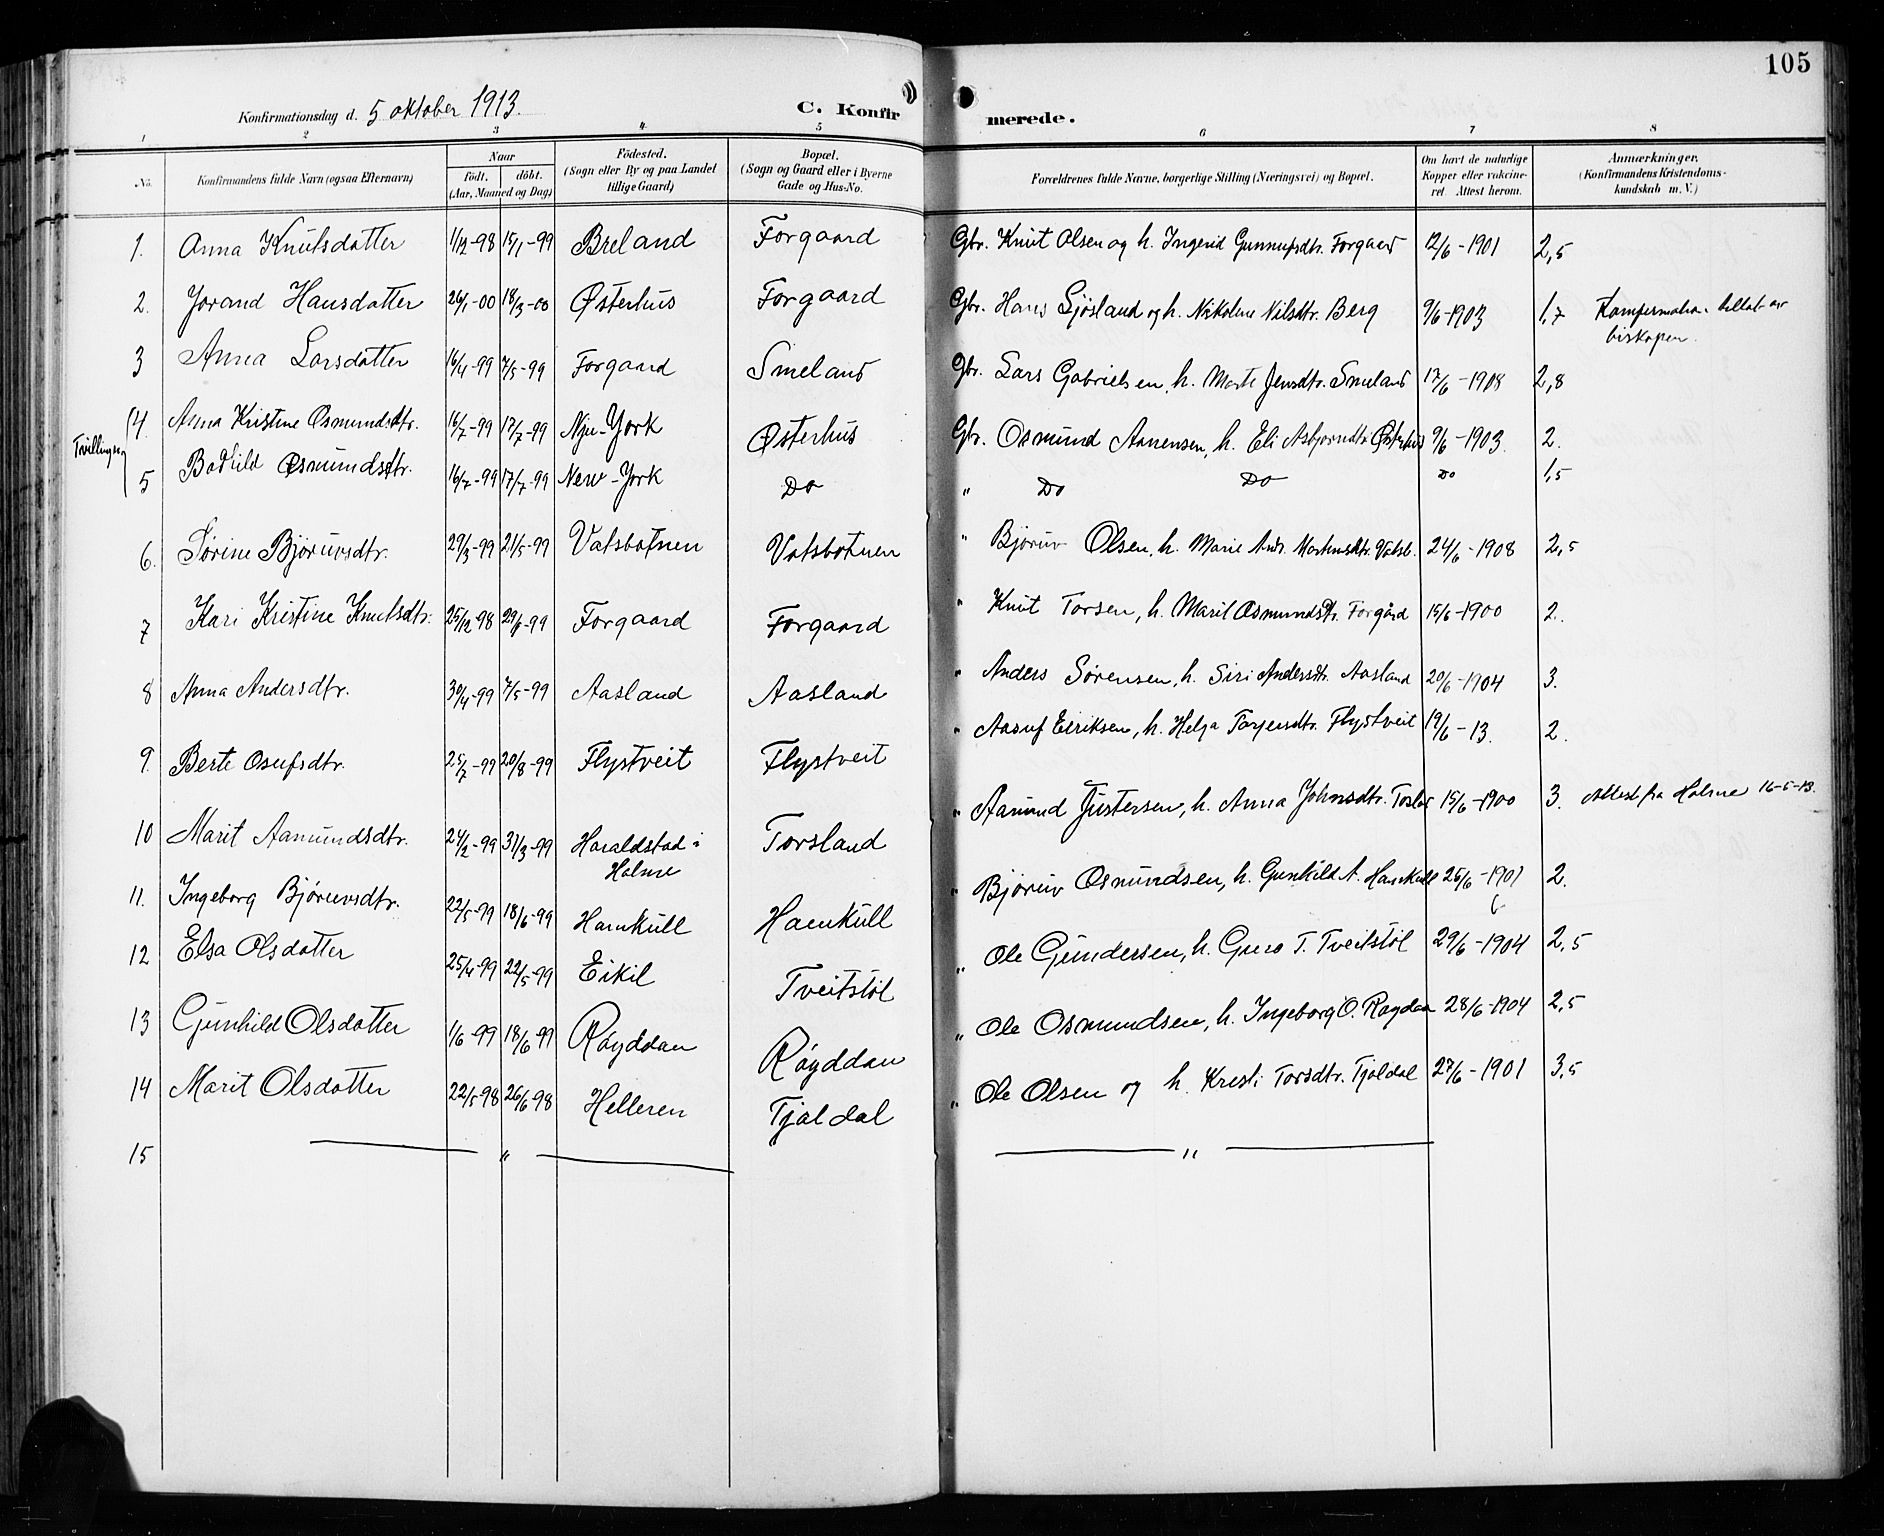 105
Konfirmationsdag d. 5 oktober 1913.
C. Konfirmerede.
1 2 3 4 5 6 7 8
No. Konfirmandens fulde Navn (ogsaa Efternavn) Naar født. døbt. (Aar, Maaned og Dag) Fødested. (Sogn eller By og paa Landet tillige Gaard) Bopæl. (Sogn og Gaard eller i Byerne Gade og Hus-No. Forældrenes fulde Navne, borgerlige Stilling (Næringsvei) og Bopæl. Om havt de naturlige Kopper eller vakcineret Attest herom. Anmærkninger. (Konfirmandens Kristendomskundskab m. V.)
1. Anna Knutsdatter 1/12-98 15/1-99 Breland Forgaard Gbr. Knut Olsen og h. Ingerid Gunnufsdtr. Forgaard 12/6-1901 2,5
2. Jorand Hansdatter 26/1-00 18/3-00 Østerhus Forgaard Gbr. Hans Sjøsland og h. Nikoline Nilsdtr. Berg 9/6-1903 1,7 tillat av
biskopen.
3 Anna Larsdatter 16/4-99 7/5-99 Forgaard Smeland Gbr. Lars Gabrielsen, h. Marte Jensdtr. Smeland 17/6-1908 2,8
Tvillinger
4. Anna Kristine Osmundsdtr. 16/7-99 17/7-99 Nju-York Østerhus Gbr. Osmund Aanensen, h. Eli Asbjorndtr. Østerhus 9/6-1903. 2.
5 Bodhild Osmundsdtr. 16/7-99 17/7-99 New-York Do " Do Do Do 1,5
6. Sørine Bjoruvsdtr. 29/3-99 21/5-99 Vatsbotnen Vatsbotnen " Bjoruv Olsen, h. Marie Andr. Mortensdtr. Vatsb. 24/6-1908 2,5
7 Kari Kristine Knutsdtr. 25/12 98 29/1-99 Forgaard Forgaard " Knut Torsen, h. Marit Osmundsdtr. Forgård 15/6-1900 2.
8 Anna Andersdtr. 30/4-99 7/5-99 Aasland Aasland " Anders Sørensen, h. Siri Andersdtr. Aasland 20/6-1904 3.
9. Berte Osufsdtr. 25/7-99 20/8-99 Flystveit Flystveit " Aasuf Eiriksen, h. Helga Torjusdtr. Flystveit 19/6-13. 2.
10 Marit Aamundsdtr. 24/2-99 31/3-99 Haraldstad i
Holme Torsland " Aamund Justersen, h. Anna Johnsdtr. 15/6-1900 3. Attest fra Holme 16-5-13.
11. Ingeborg Bjoruvsdtr. 22/5-99 18/6-99 Hamkull Hamkull " Bjoruv Osmundsen, h. Gunhild A. Hamkull 26/6-1901 2.
12 Elsa Olsdatter 25/4-99 22/5-99 Eikil Tveitstøl " Ole Gundersen, h. Guro T. Tveitstøl 29/6-1904 2,5
13 Gunhild Olsdatter 1/6-99 18/6-99 Røyddan Røyddan " Ole Osmundsen, h. Ingeborg O. 28/6-1904 2,5
14 Marit Olsdatter 22/5-98 26/6-98 Helleren Tjaldal " Ole Olsen og h. Kresti Torsdtr. Tjaldal 27/6-1901 3,5
15 — " — — " —